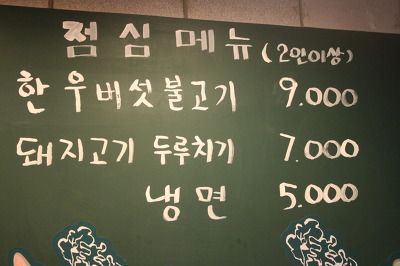 점심메뉴 (2인이상)
한우버섯불고기 9.000
돼지고기 두루치기 7.000
냉면 5.000